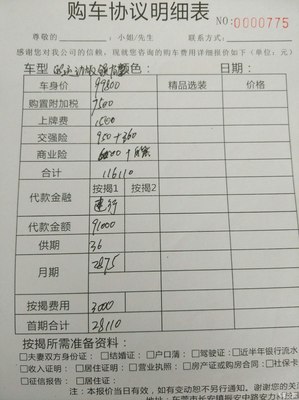 购车协议明细表 NO:0000775
尊敬的________,小姐/先生 联系方式:
感谢您对我公司的信赖,现就您咨询的购车费用详细报价如下(单位:元)
车型 颜色: 日期:
车身价 99800 精品选装 价格
购置附加税 7500
上牌费 1500
交强险 950+360
商业险 6000+
合计 116110
代款金融 按揭1 按揭2
建行
代款金额 91000
供期 36
月期 2875
按揭费用 3000
首期合计 28110
按揭所需准备资料:
□夫妻双方身份证: □结婚证: □户口清: □驾驶证: □近半年银行流水
□收入证明: □居住证明: □营业执照: □房产证或购房合同: □社保卡
□征信报告: □居住证:
注:本报价当日有效,如有变动恕不另行通知。谢谢您的
地址:东莞市长安镇振安中路安力